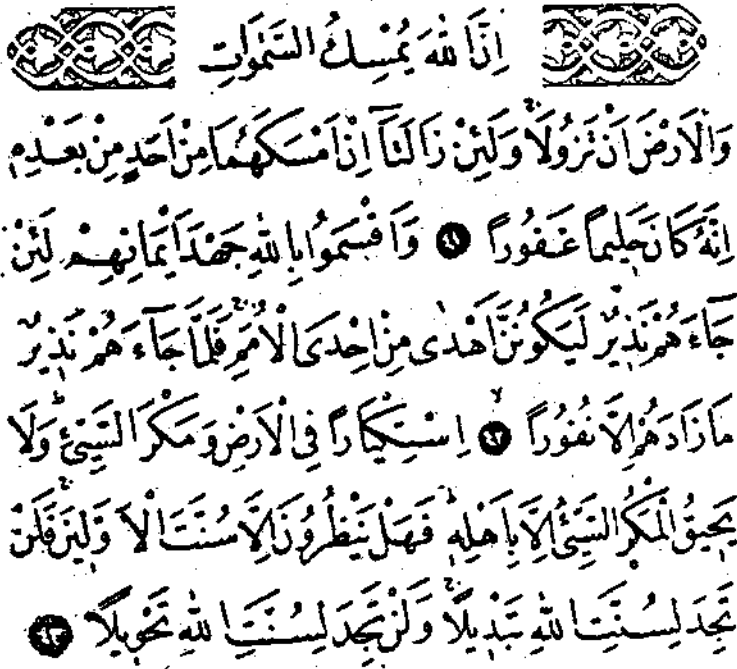 اِنَّ اللّٰهَ يُمْسِكُ السَّمٰوَاتِ
وَالْاَرْضَ اَنْ تَزُولَاۚ وَلَئِنْ زَالَتَٓا اِنْ اَمْسَكَهُمَا مِنْ اَحَدٍ مِنْ بَعْدِه۪ۜ
اِنَّهُ كَانَ حَل۪يمًا غَفُورًا ﴿٤١﴾ وَاَقْسَمُوا بِاللّٰهِ جَهْدَ اَيْمَانِهِمْ لَئِنْ
جَٓاءَهُمْ نَذ۪يرٌ لَيَكُونُنَّ اَهْدٰى مِنْ اِحْدَى الْاُمَمِۚ فَلَمَّا جَٓاءَهُمْ نَذ۪يرٌ
مَا زَادَهُمْ اِلَّا نُفُورًاۙ ﴿٤٢﴾ اِسْتِكْبَارًا فِي الْاَرْضِ وَمَكْرَ السَّيِّئِۜ وَلَا
يَح۪يقُ الْمَكْرُ السَّيِّئُ اِلَّا بِاَهْلِه۪ۜ فَهَلْ يَنْظُرُونَ اِلَّا سُنَّتَ الْاَوَّل۪ينَۚ فَلَنْ
تَجِدَ لِسُنَّتِ اللّٰهِ تَبْد۪يلًاۚ وَلَنْ تَجِدَ لِسُنَّتِ اللّٰهِ تَحْو۪يلًا ﴿٤٣﴾